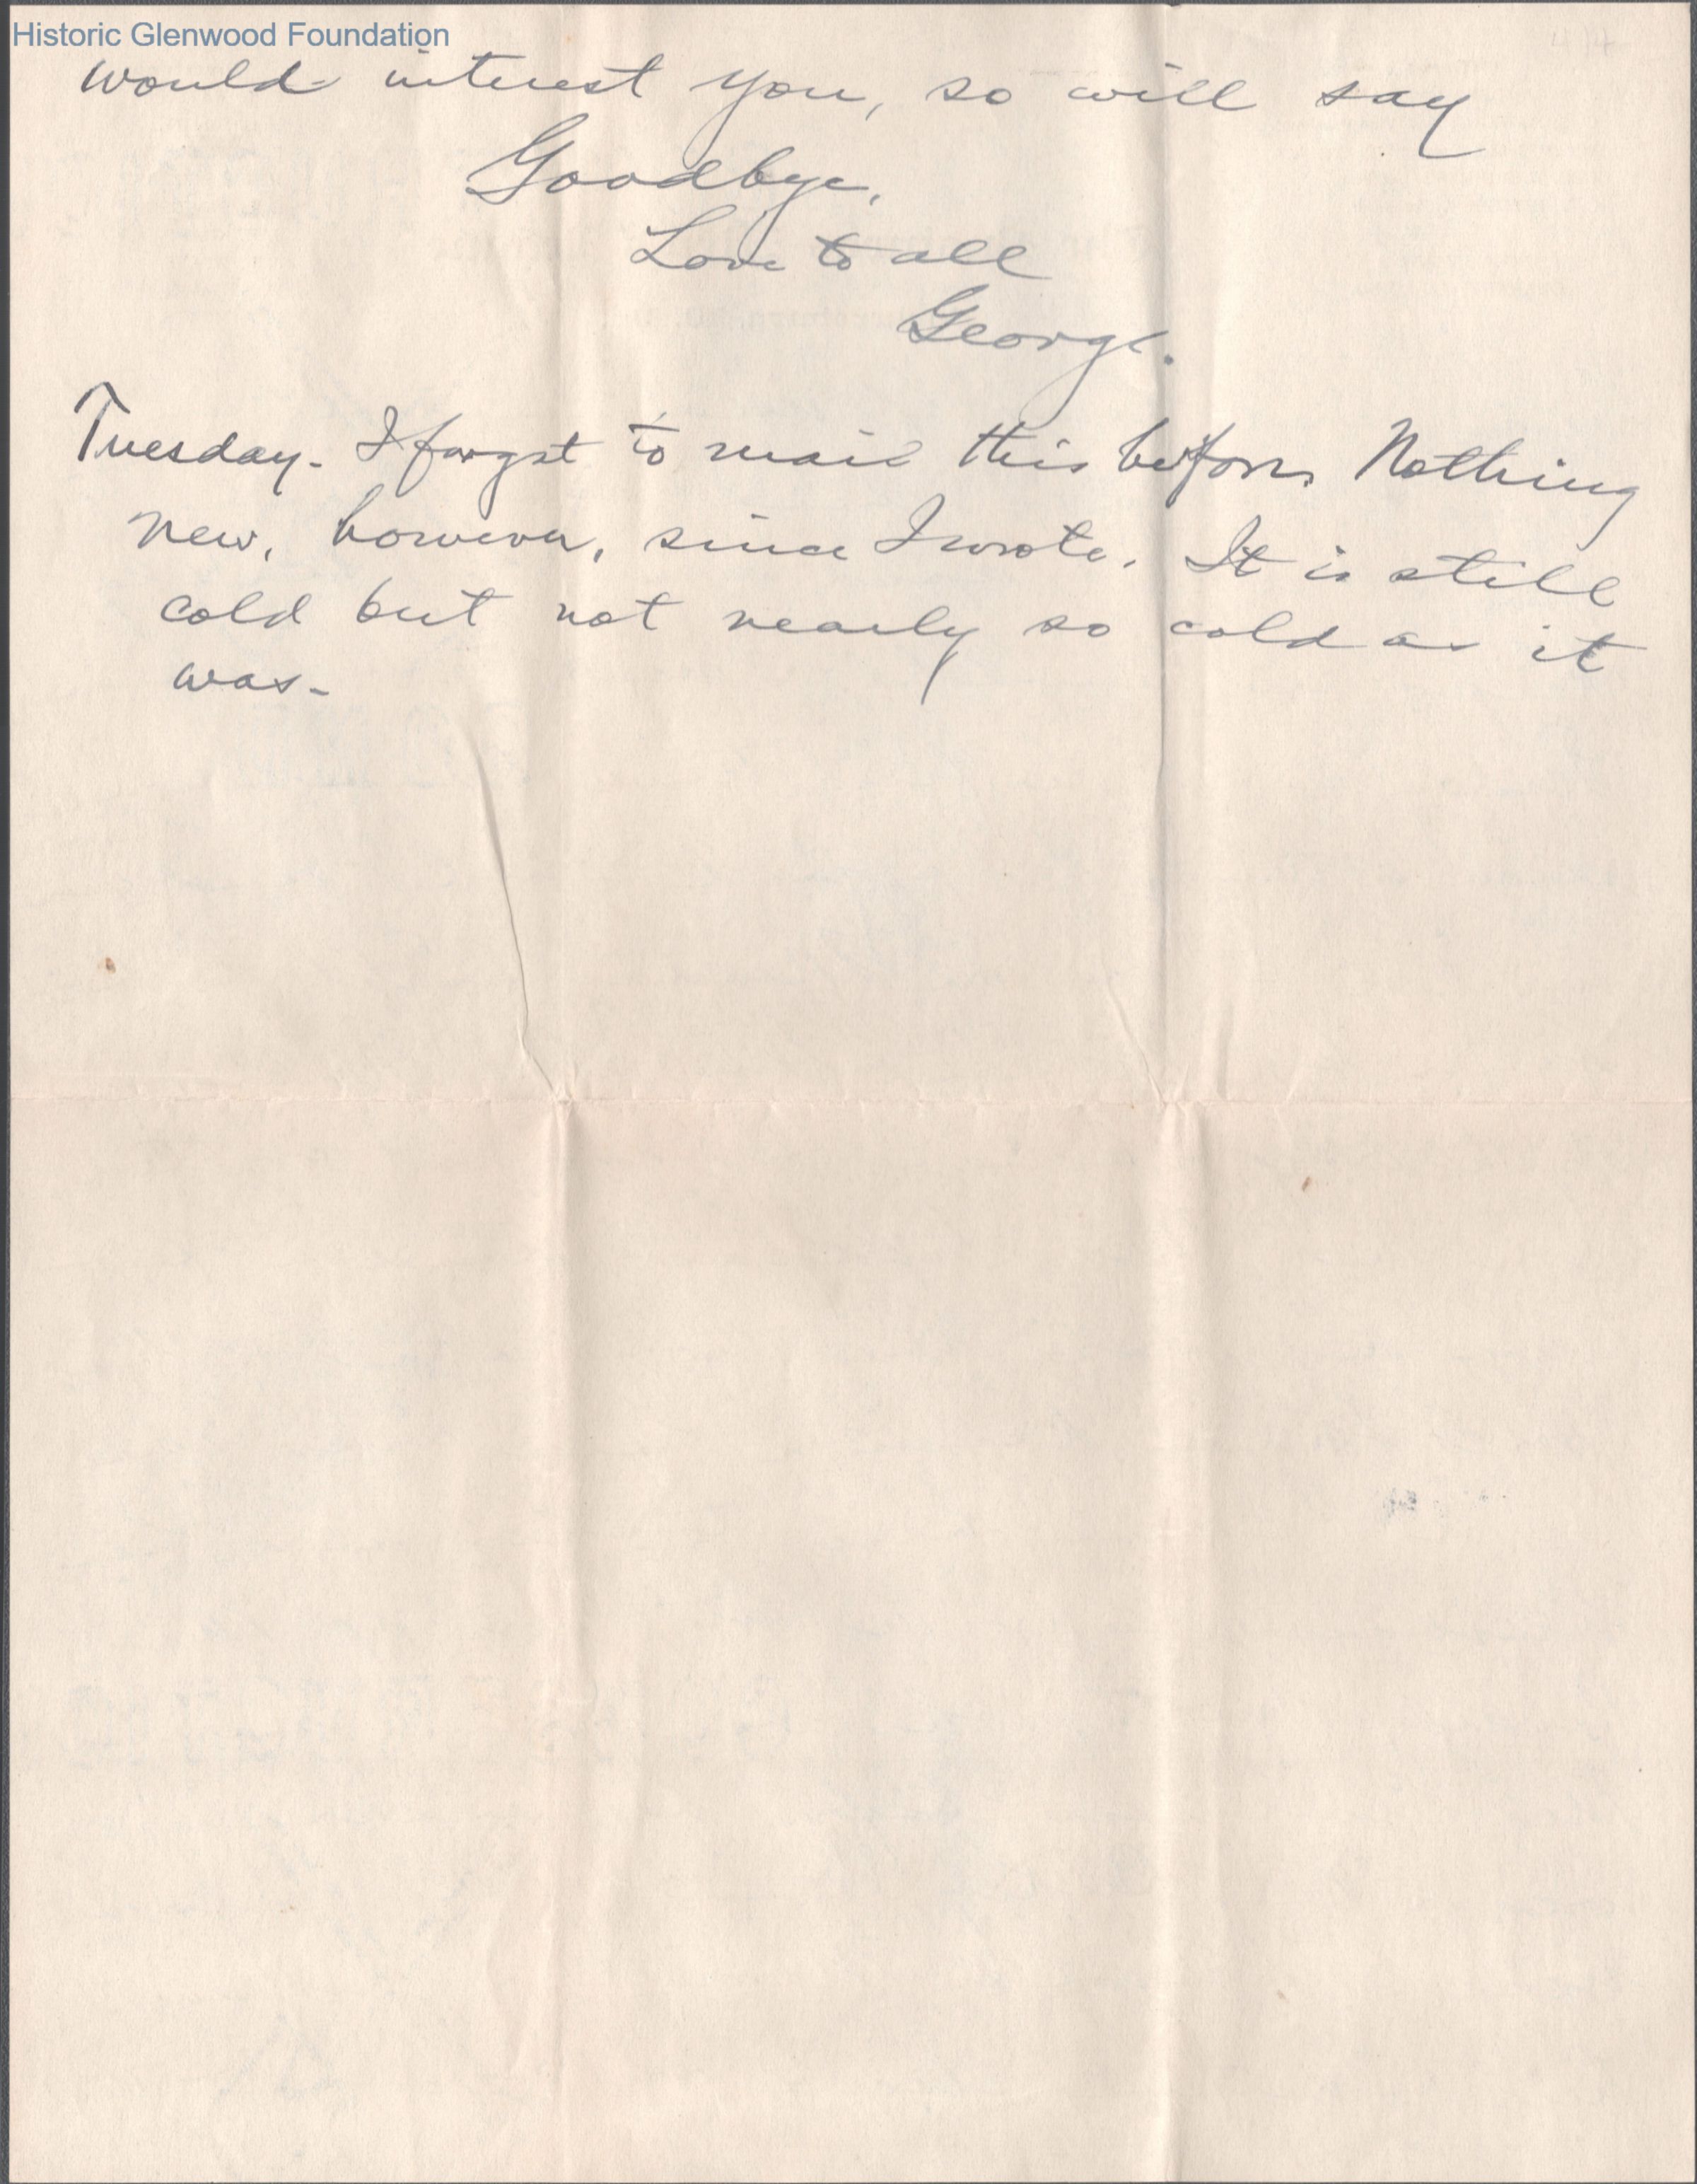 Historic Glenwood Foundation
would interest you, so will say
Goodbye.
Love to all
George.
Tuesday- I forgot to mail this before. Nothing
new, however, since I wrote. It is still
cold but not nearly so cold as it
was-